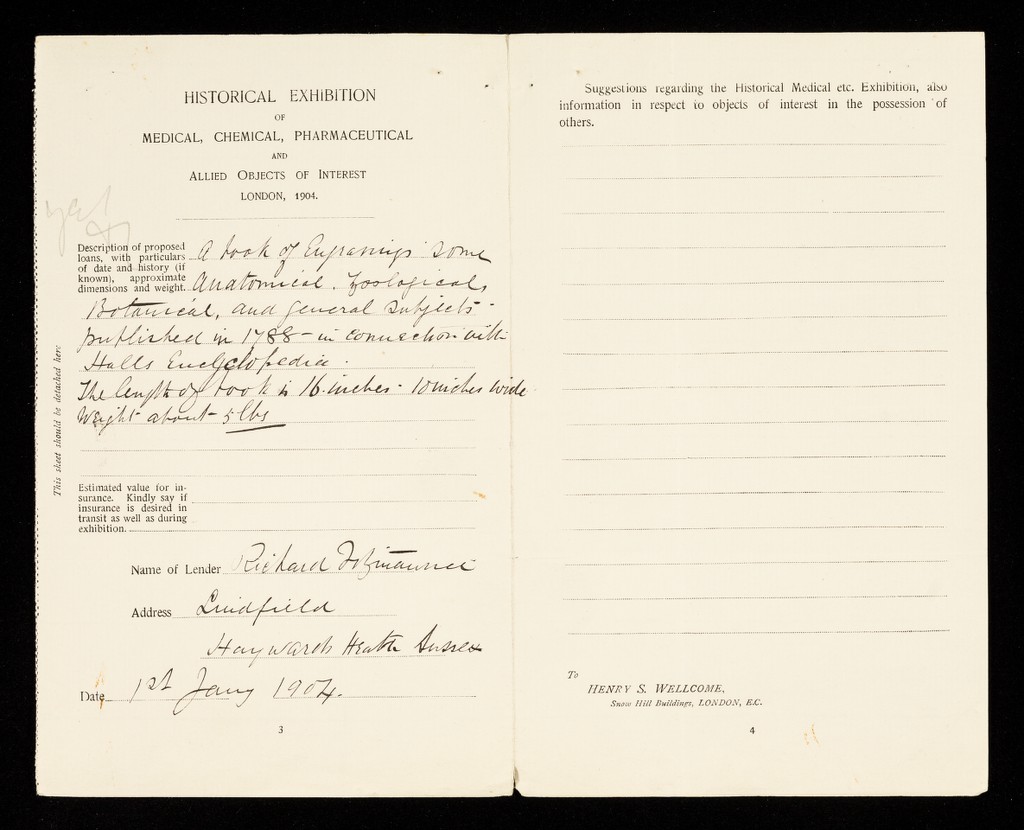 HISTORICAL EXHIBITION
OF
MEDICAL, CHEMICAL, PHARMACEUTICAL
AND
ALLIED OBJECTS OF INTEREST
LONDON, 1904.
Description of proposed
loans, with particulars
of date and history (if
known), approximate
dimensions and weight.
A book of Engravings some
Anatomical, Zoological,
Botanical, and general subjects -
published in 1788 - in connection with
Halls Encyclopedia.
The length of book is 16 inches - 10 inches wide
Weight about 5 lbs
This sheet should be detached here
Estimated value for in-
surance. Kindly say if
insurance is desired in
transit as well as during
exhibition.
Name of Lender Richard Fitzmaurice
Address Lindfield
Haywards Heath Sussex
Date 1st Jany 1904.
3
Suggestions regarding the Historical Medical etc. Exhibition, also
information in respect to objects of interest in the possession of
others.
To
HENRY S. WELLCOME,
Snow Hill Buildings, LONDON, E.C.
4